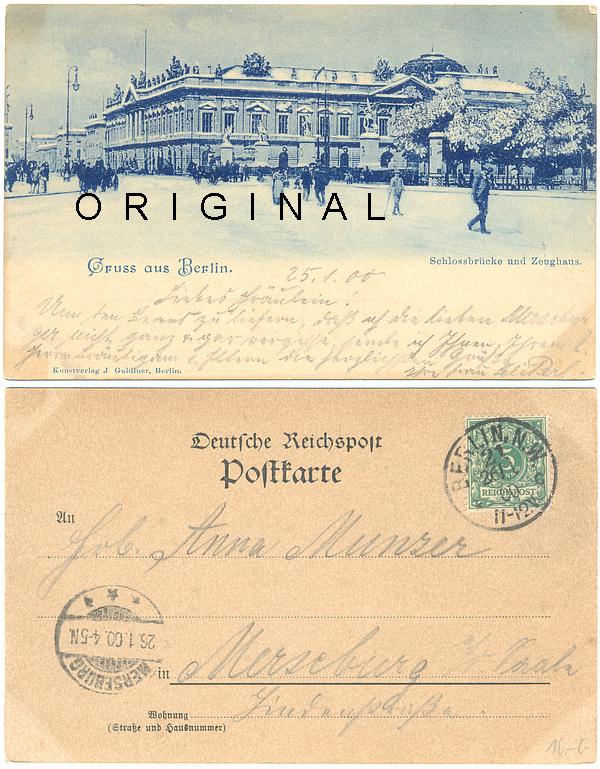 ORIGINAL
Gruss aus Berlin.
Schlossbrücke und Zeughaus.
25.1.00
Liebes Fräulein!
Um den Beweis zu liefern, daß ich die lieben Mersebur
ger nicht ganz u gar vergesse, sende ich Ihnen, Ihrem
Herrn Bräutigam u. Eltern die herzlichsten Grüße
Ihre Frau
Kunstverlag J Goldiner, Berlin.
Deutsche Reichspost
Postkarte
BERLIN, N.W.
26
1
00
11-12V.
5
REICHSPOST
An
Anna Munzer
26.1.00.4-5N.
MERSEBURG
in Merseburg a/ Saale
Lindenstraße.
Wohnung
(Straße und Hausnummer)
10.-